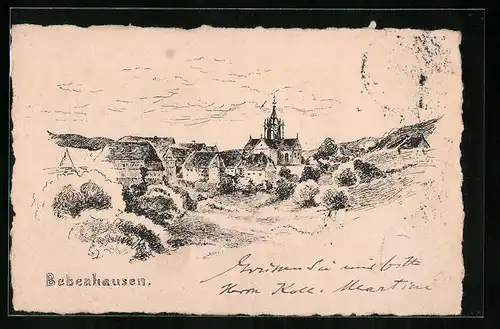 Bebenhausen.
Grüssen Sie mir bitte
Herrn Koll. Martini